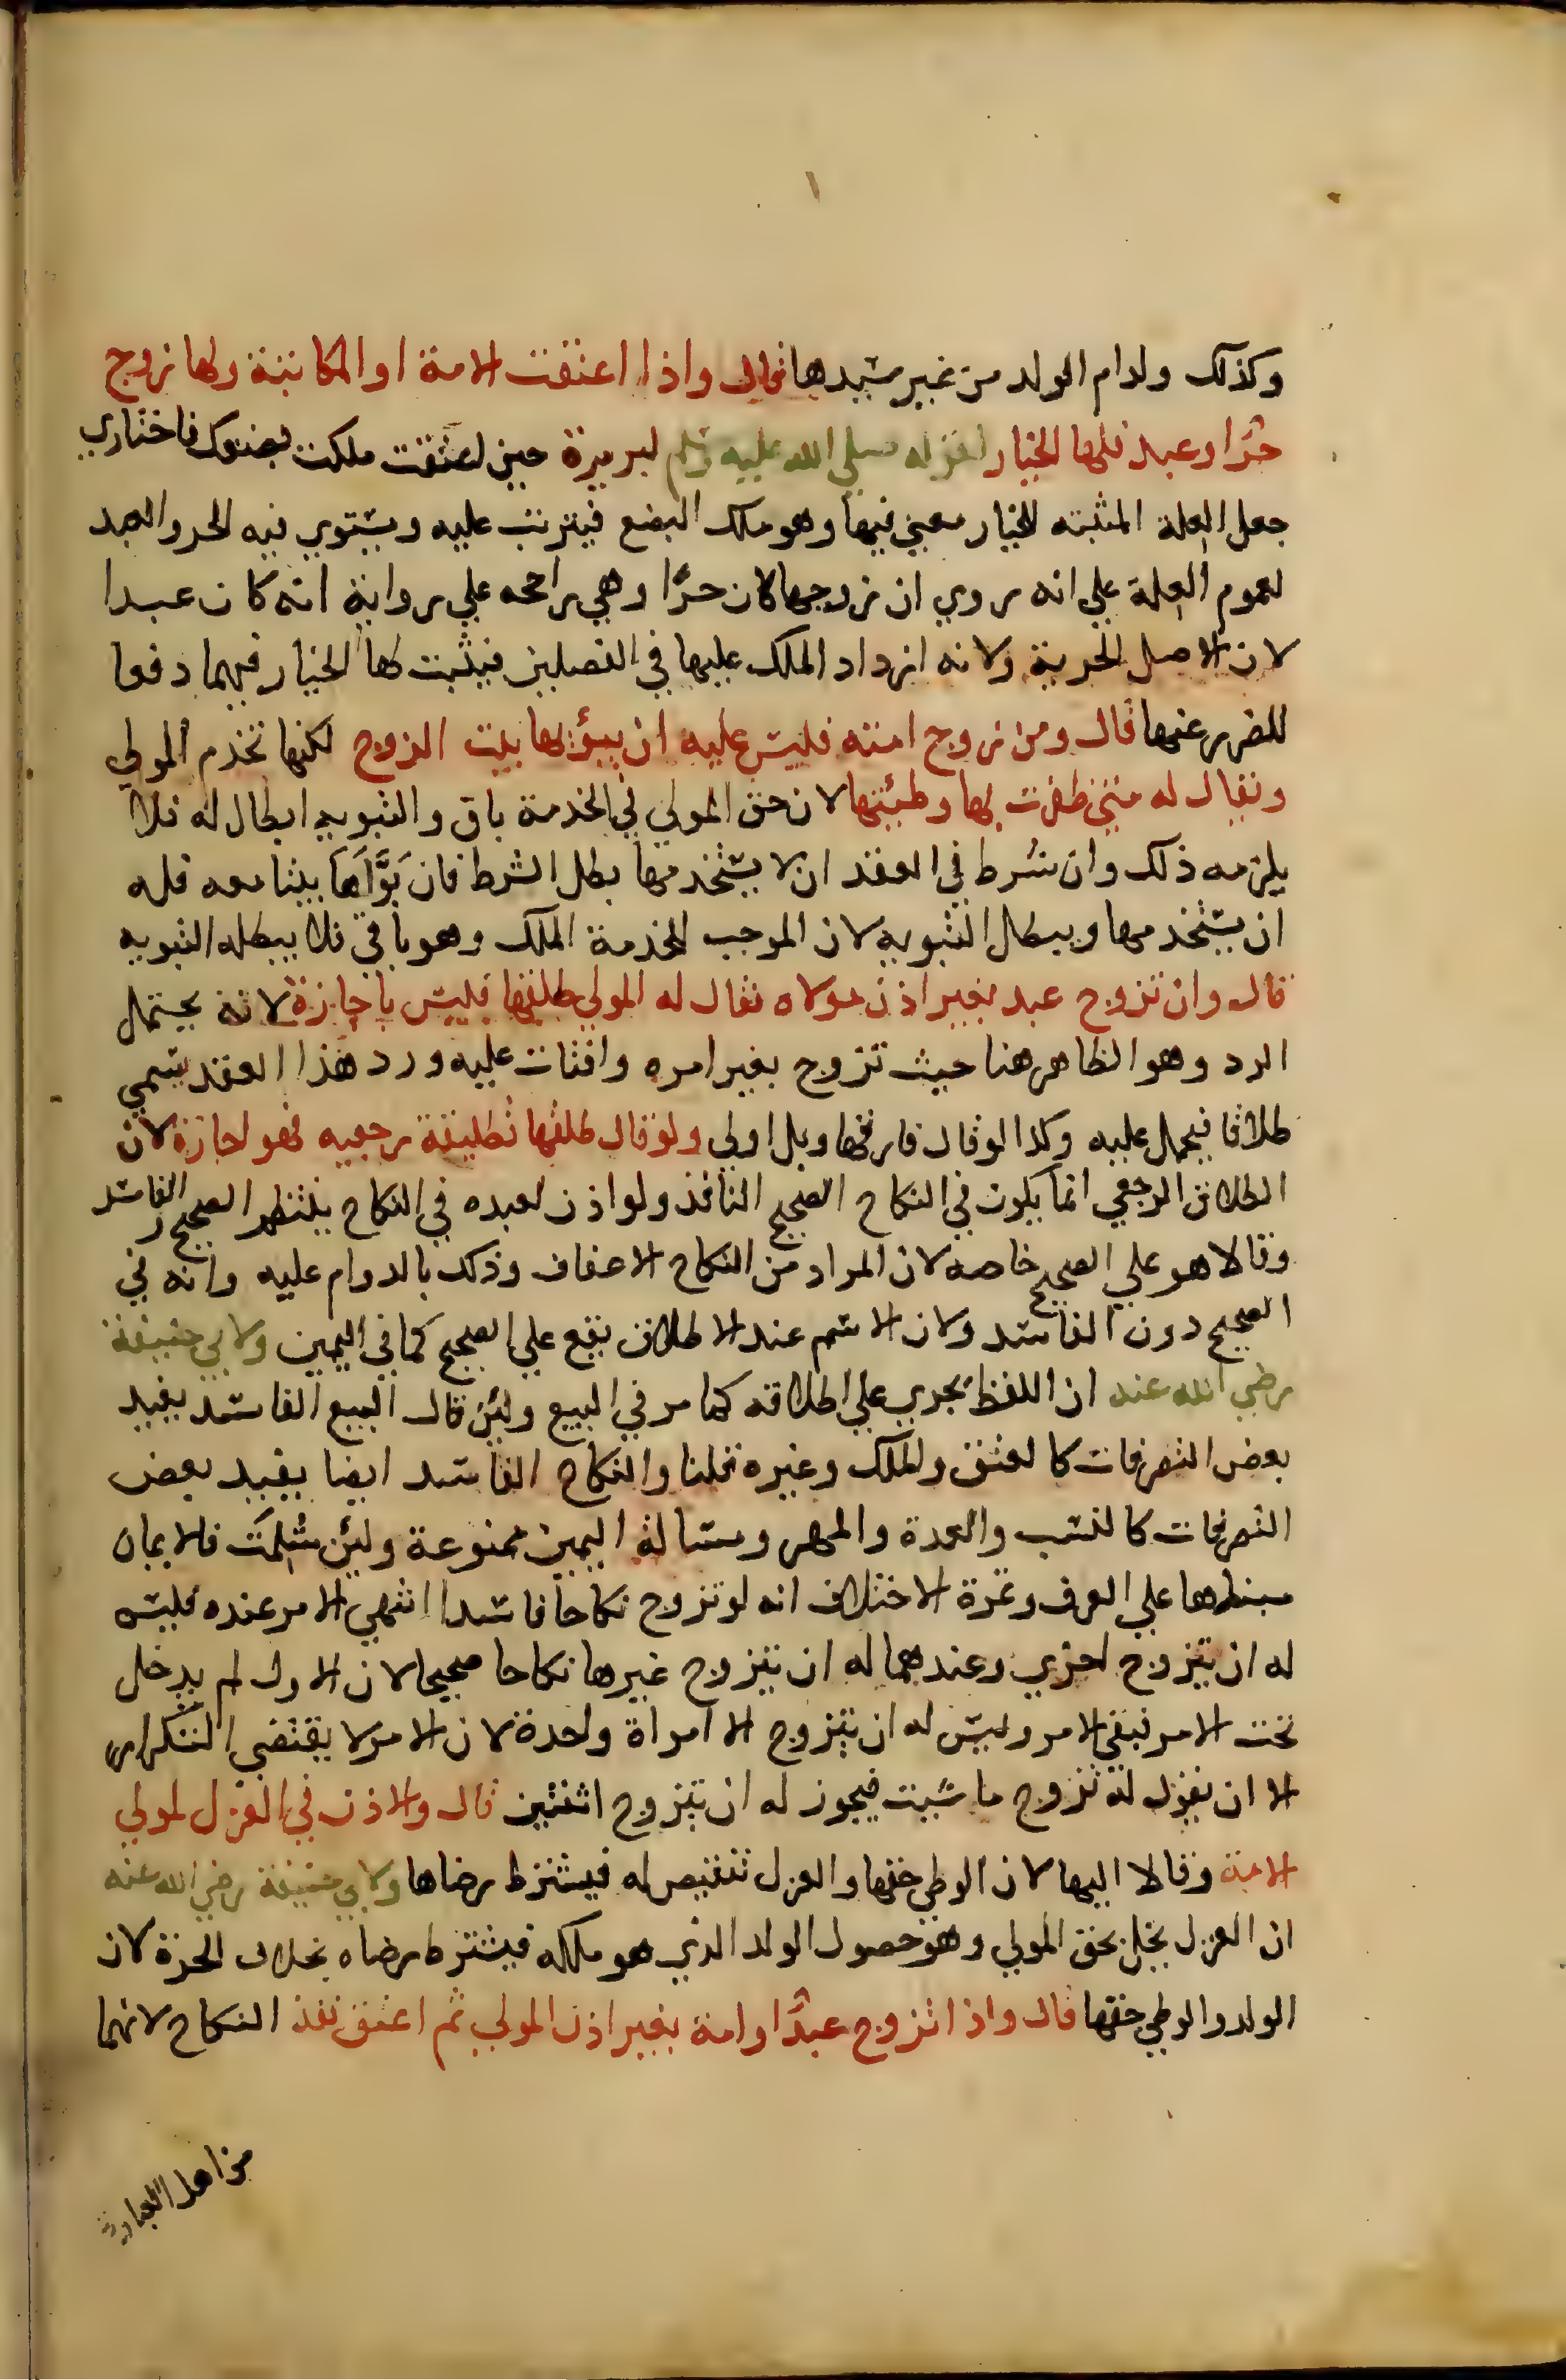 ١
وكذلك ولدام الولد من غير سيدها قال واذا اعتقت الامة او المكاتبة ولها زوج
حرا وعبد فلها الخيار لقوله صلى الله عليه وسلم لبريرة حين اعتقت ملكت بضعك فاختاري
جعل العلة المثبته للخيار معنى فيها وهو ملك البضع فيترتب عليه ويستوي فيه الحر والعبد
لعموم العلة علي انه روي ان زوجها كان حرًّا وهي راجحه علي رواية انه كان عبدا
لان الاصل الحرية ولانه ازداد الملك عليها في الفصلين فيثبت لها الخيار فيهما دفعا
للضرر عنها قال ومن زوج امته فليس عليه ان يبؤئها بيت الزوج لكنها تخدم المولي
ويقال له متى ظفرت بها وطئتها لان حق المولي في الخدمة باق والتبويه ابطال له فلا
يلزمه ذلك وان شرط في العقد ان لا يستخدمها بطل الشرط فان بَوَّأَهَا بيتا معه فله
ان يستخدمها ويبطل التبويه لان الموجب للخدمة الملك وهو باقي فلا يبطله التبويه
قال وان تزوج عبد بغير اذن مولاه فقال له المولي طلقها فليس باجازة لانه يحتمل
الرد وهو الظاهر هنا حيث تزوج بغير امره وافتات عليه ورد هذا العقد يسمي
طلاقا فيحمل عليه وكذا لو قال فارقها وبل اولي ولو قال طلقها تطليقة رجعيه فهو اجازة لان
الطلاق الرجعي انما يكون في النكاح الصحيح النافذ ولو اذن لعبده في النكاح ينتظم الصحيح والفاسد
وقالا هو علي الصحيح خاصه لان المراد من النكاح الاعفاف وذلك بالدوام عليه وانه في
الصحيح دون الفاسد ولان الاسم عند الاطلاق يقع علي الصحيح كما في اليمين ولابي حنيفة
رضي الله عنه ان اللفظ يجري علي اطلاقه كما مر في البيع ولئن قال البيع الفاسد يفيد
بعض التصرفات كالعتق والملك وغيره قلنا والنكاح الفاسد ايضا يفيد بعض
التصرفات كالنسب والعدة والمهر ومسالة اليمين ممنوعة ولئن سُلِمَت فالايمان
مبناها علي العرف وثمرة الاختلاف انه لو تزوج نكاحا فاسدا انتهي الامر عنده فليس
له ان يتزوج اخري وعندهما له ان يتزوج غيرها نكاحا صحيحا لان الاول لم يدخل
تحت الامر فبقي الامر وليس له ان يتزوج الا امراة واحدة لان الامر لا يقتضي التكرار
الا ان يقول له تزوج ما شيت فيجوز له ان يتزوج اثنتين قال والاذن في العزل لمولي
الامة وقالا اليها لان الوطي حقها والعزل تنقيص له فيشترط رضاها ولابي حنيفة رضي الله عنه
ان العزل يخل بحق المولي وهو حصول الولد الذي هو ملكه فيشترط رضاه بخلاف الحرة لان
الولد والوطي حقها قال واذا تزوج عبدًا وامة بغير اذن المولي ثم اعتق نفذ النكاح لانهما
من اهل العبارة